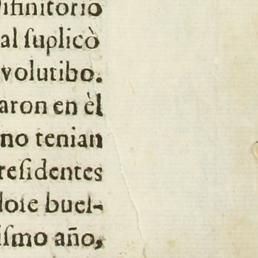 ifinitorio
al ſuplicò
volutibo.
aron en èl
no tenian
reſidentes
doſe buel-
iſmo año,